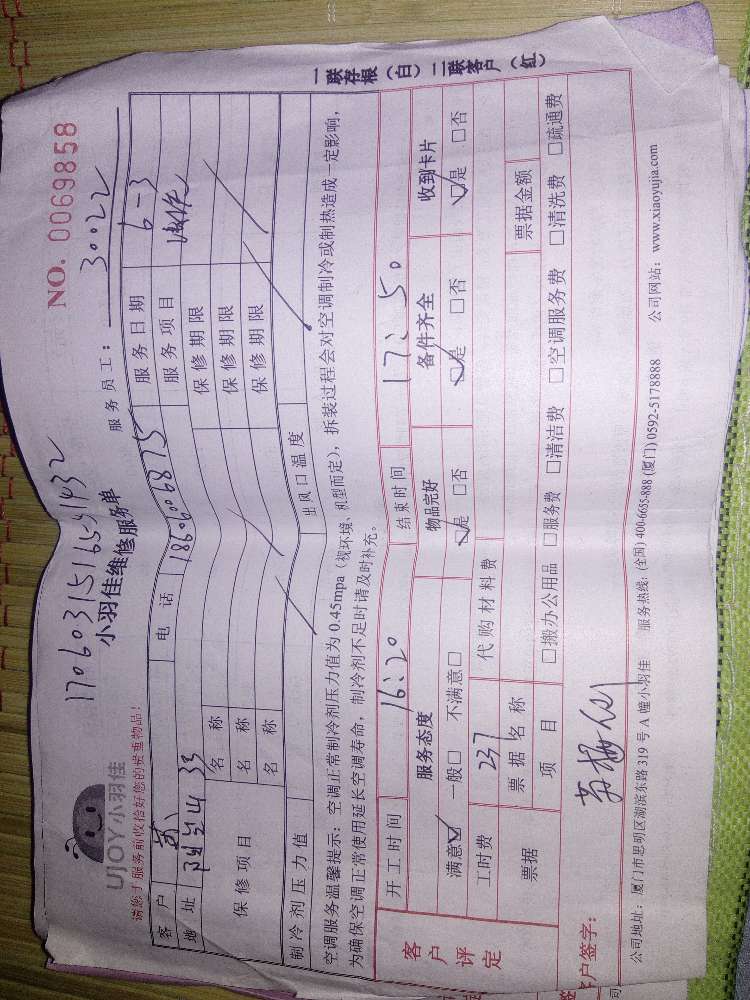 NO. 0069858
1706031516591432
UJOY小羽佳
小羽佳维修服务单
服务员工: 30022
请您于服务前收拾好您的贵重物品!
客户 苏 电话 18606006875 服务日期 6-3
地址 33 服务项目
保修项目 名称 保修期限
名称 保修期限
名称 保修期限
制冷剂压力值 出风口温度
空调服务温馨提示: 空调正常制冷剂压力值为 0.45mpa (视环境、机型而定), 拆装过程会对空调制冷或制热造成一定影响,
为确保空调正常使用延长空调寿命, 制冷剂不足时请及时补充。
一联存根 (白) 二联客户 (红)
客户评定
开工时间 16:20 结束时间 17:50
服务态度 物品完好 备件齐全 收到卡片
满意☑ 一般□ 不满意□ ☑是 □否 ☑是 □否 ☑是 □否
工时费 237 代购材料费
票据 票据名称 票据金额
项目 □搬办公用品 □服务费 □清洁费 □空调服务费 □清洗费 □疏通费
客户签字:
公司地址: 厦门市思明区湖滨东路 319 号 A 幢小羽佳 服务热线: (全国) 400-6655-888 (厦门) 0592-5178888 公司网站: www.xiaoyujia.com